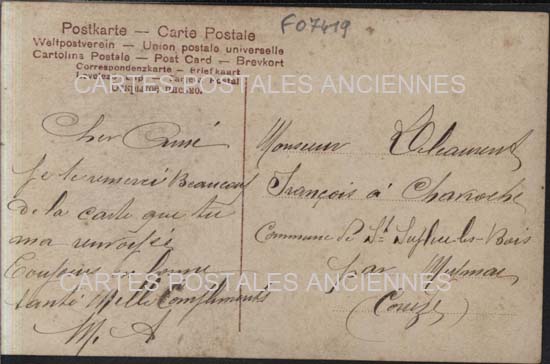 F07419
Postkarte — Carte Postale
Weltpostverein — Union postale universelle
Cartolina Postale — Post Card — Brevkort
Correspondenzkarte — Briefkaart
CARTES POSTALES ANCIENNES
Cher Aimé
Je te remerci Beaucoup
de la carte que tu
ma renvoyé
Toujours en bonne
santé Mille Compliments
M. A
Monsieur
François à
Commune de St Sulpice les Bois
par Meymac
(Corrèze)
CARTES POSTALES ANCIENNES